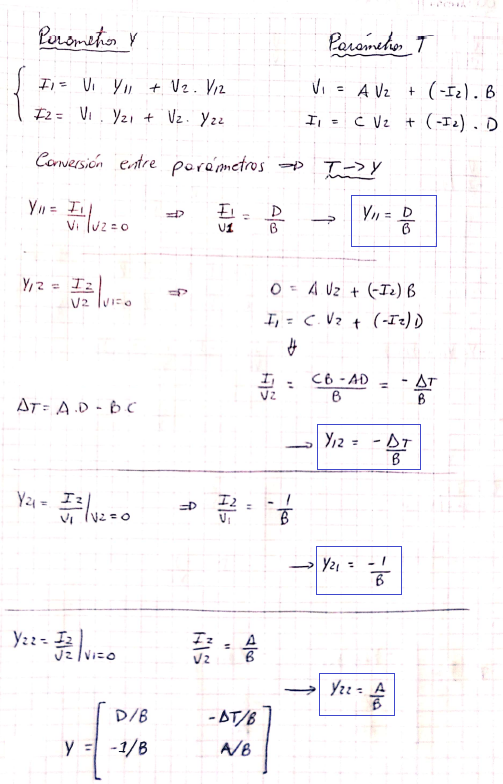 Parámetros Y
Parámetros T
I1 = V1 Y11 + V2 . Y12
V1 = A V2 + (-I2) . B
I2 = V1 . Y21 + V2 . Y22
I1 = C V2 + (-I2) . D
Conversión entre parámetros => T → Y
Y11 = I1/V1 | V2=0 => I1/V1 = D/B → Y11 = D/B
Y12 = I2/V2 | V1=0 => 0 = A V2 + (-I2) B
I1 = C . V2 + (-I2) D
⇓
I1/V2 = CB - AD/B = - ΔT/B
ΔT = A.D - B.C
→ Y12 = - ΔT/B
Y21 = I2/V1 | V2=0 => I2/V1 = - 1/B
→ Y21 = -1/B
Y22 = I2/V2 | V1=0 I2/V2 = A/B
→ Y22 = A/B
D/B -ΔT/B
Y = -1/B A/B